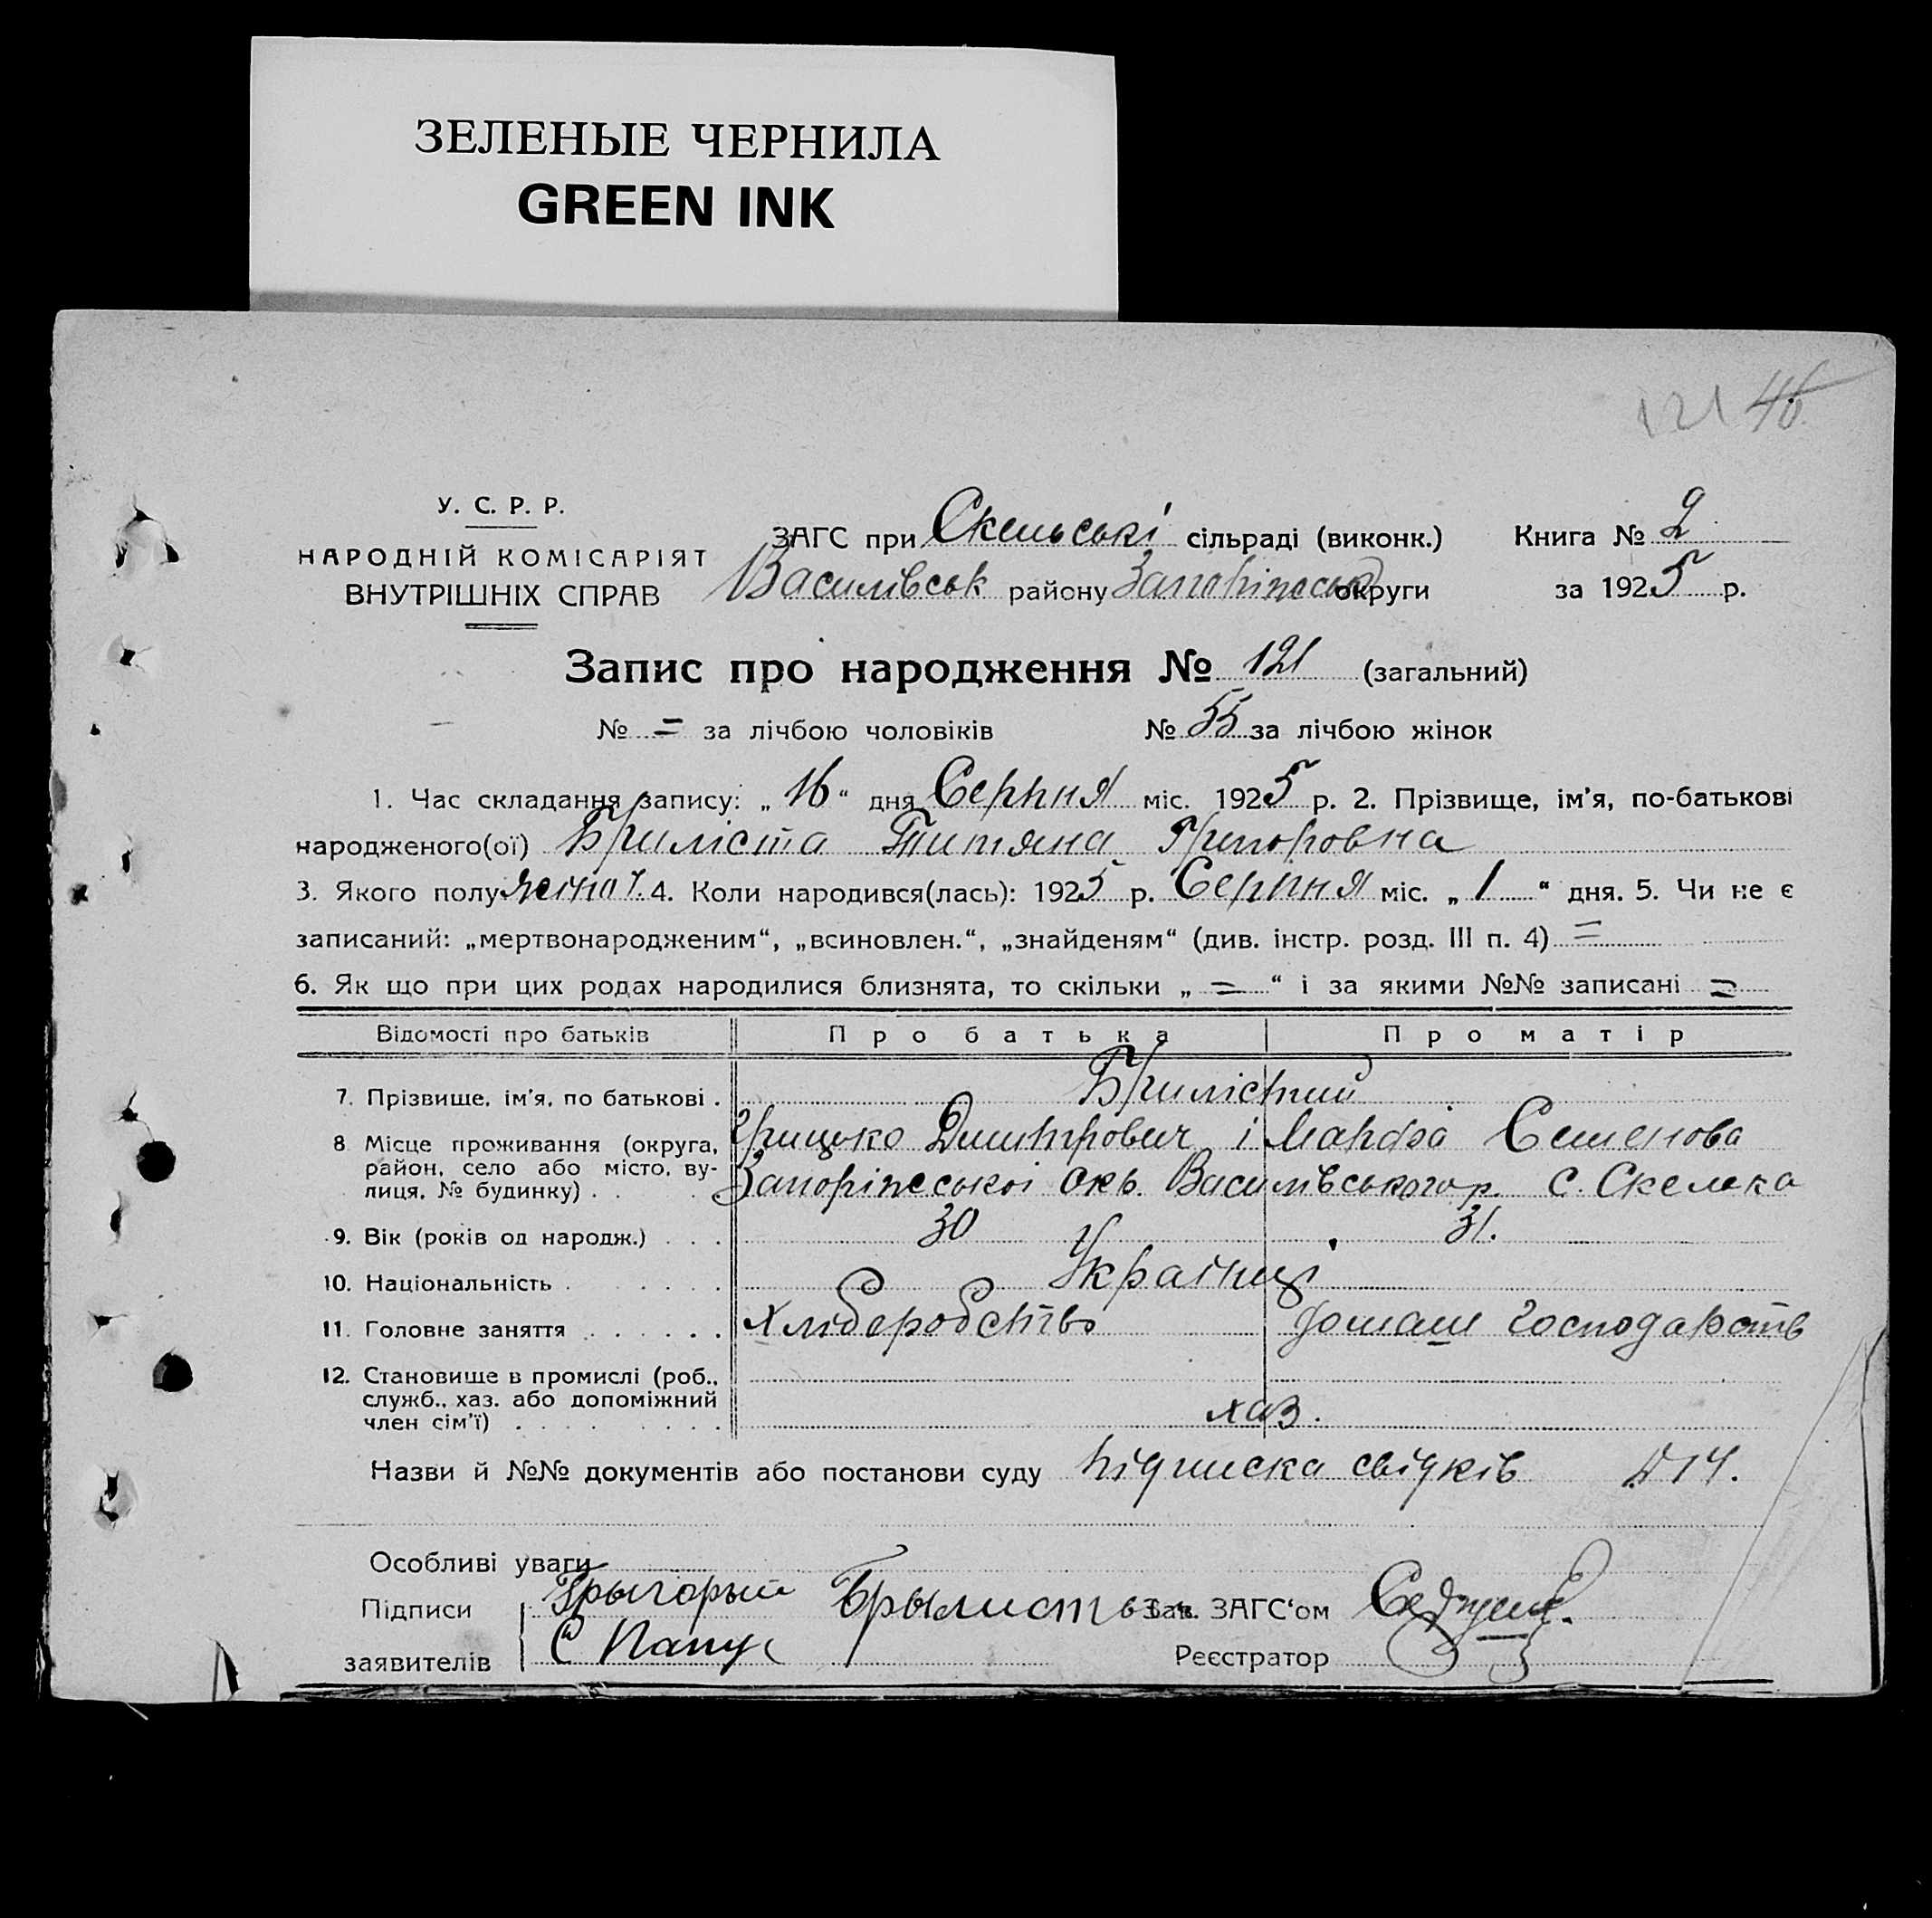 ЗЕЛЕНЫЕ ЧЕРНИЛА
GREEN INK
121 46
У. С. Р. Р.
НАРОДНІЙ КОМІСАРІЯТ
ВНУТРІШНІХ СПРАВ
ЗАГС при Скельські сільраді (виконк.) Книга № 2
Василівськ району Запоріжськ округи за 1925 р.
Запис про народження № 121 (загальний)
№ = за лічбою чоловіків № 55 за лічбою жінок
1. Час складання запису: „16“ дня Серпня міс. 1925 р. 2. Прізвище, ім'я, по-батькові
народженого(ої) Бриліста Титяна Григоровна
3. Якого полу жіноч. 4. Коли народився(лась): 1925 р. Серпня міс. „1“ дня. 5. Чи не є
записаний: „мертвонародженим“, „всиновлен.“, „знайденям“ (див. інстр. розд. III п. 4) =
6. Як що при цих родах народилися близнята, то скільки „ = “ і за якими №№ записані =
Відомості про батьків Про батька Про матір
7. Прізвище, ім'я, по батькові . Брилістий
8 Місце проживання (округа, Грицько Дмитрович і Марфа Семенова
район, село або місто, ву- Запоріжської окр. Василівського р. с. Скелька
лиця, № будинку) . .
9. Вік (років од народж.) . . . 30 31.
10. Національність . . . . . Українці
11. Головне заняття . . . . . . Хліборобство домаш господарств
12. Становище в промислі (роб.,
служб., хаз. або допоміжний
член сім'ї) . . . . . . . хаз.
Назви й №№ документів або постанови суду підписка свідків №14.
Особливі уваги
Підписи Грыгорый Брылист Зав. ЗАГС'ом
заявителів Реєстратор